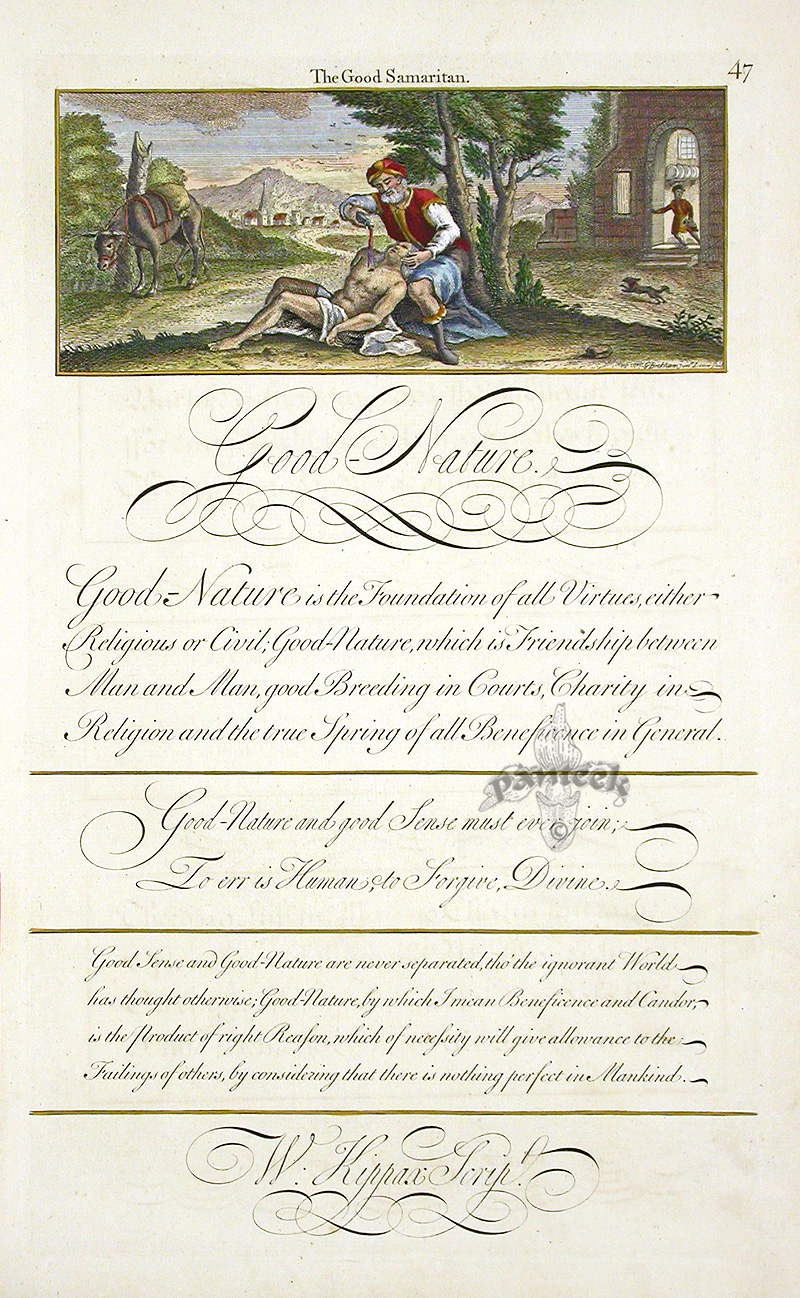 The Good Samaritan.
47
Good-Nature.
Good-Nature is the Foundation of all Virtues, either
Religious or Civil; Good-Nature, which is Friendship between
Man and Man, good Breeding in Courts, Charity in
Religion and the true Spring of all Beneficence in General.
panteek
©
Good-Nature and good Sense must ever join;
To err is Human, to Forgive, Divine.
Good Sense and Good-Nature are never separated, tho' the ignorant World
has thought otherwise; Good-Nature, by which I mean Beneficence and Candor,
is the Product of right Reaſon, which of neceſsity will give allowance to the
Failings of others, by considering that there is nothing perfect in Mankind.
W. Kippax Scrip.t